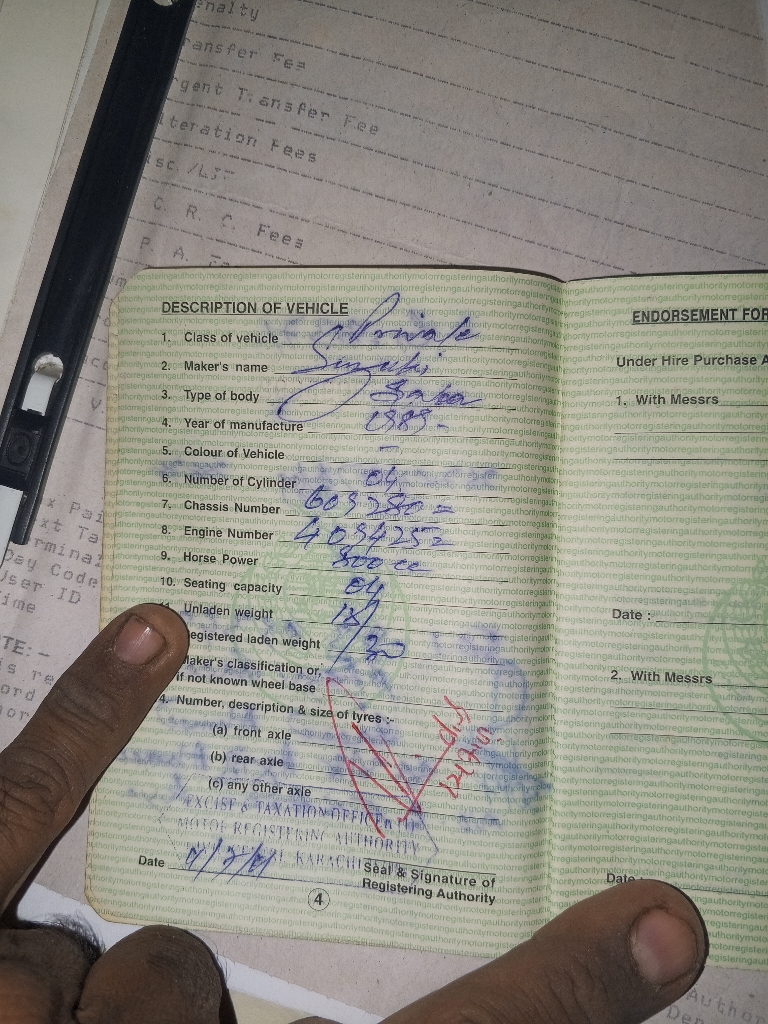 enalty
ansfer Fee
gent Transfer Fee
lteration Fees
isc.
C. R. C. Fees
P. A.
DESCRIPTION OF VEHICLE
1. Class of vehicle Private
2. Maker's name Suzuki
3. Type of body
4. Year of manufacture 1989-
5. Colour of Vehicle —
6. Number of Cylinder 04
7. Chassis Number 609280=
8. Engine Number 409425=
9. Horse Power 800 cc
10. Seating capacity 04
Unladen weight
egistered laden weight
aker's classification or,
if not known wheel base
4. Number, description & size of tyres :-
(a) front axle
(b) rear axle
(c) any other axle
EXCISE & TAXATION OFFICER
MOTOR REGISTERING AUTHORITY
KARACHI
Date
Seal & Signature of
Registering Authority
4
ENDORSEMENT FOR
Under Hire Purchase A
1. With Messrs
Date :
2. With Messrs
Date
x Pai
xt Ta
rminal
Day Code
User ID
ime
TE: -
is re
ord
Author